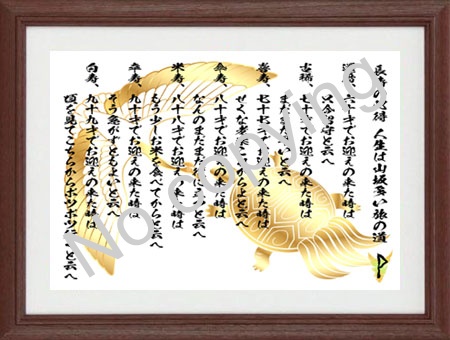 長寿の心得 人生は山坂多い旅の道
還暦、六十才でお迎えの来た時は
只今留守と云へ
古稀、七十才でお迎えの来た時は
まだまだ早いと云へ
喜寿、七十七才でお迎えの来た時は
せくな老楽これからよと云へ
傘寿、八十才でお迎えの来た時は
なんのまだまだ役に立つと云へ
米寿、八十八才でお迎えの来た時は
もう少しお米を食べてからと云へ
卒寿、九十才でお迎えの来た時は
そう急がずともよいと云へ
白寿、九十九才でお迎えの来た時は
頃を見てこちらからボツボツ行くと云へ
No copying